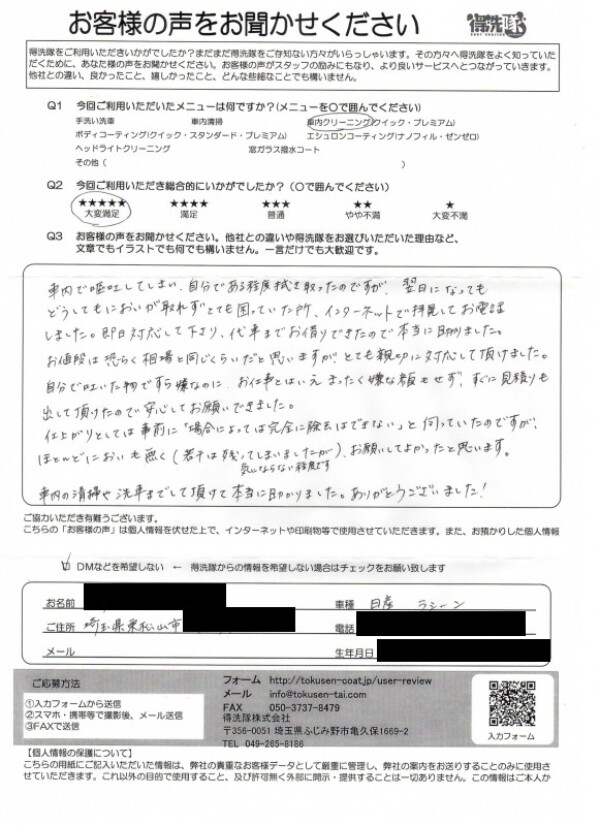 お客様の声をお聞かせください
得洗隊
得洗隊をご利用いただきいかがでしたか？まだまだ得洗隊をご存知ない方々がいらっしゃいます。その方々へ得洗隊をよく知っていた
だくために、あなた様の声をお聞かせください。お客様の声がスタッフの励みにもなり、より良いサービスへとつながっていきます。
他社との違い、良かったこと、嬉しかったこと、どんな些細なことでも構いません。
Q1 今回ご利用いただいたメニューは何ですか？(メニューを〇で囲んでください)
手洗い洗車 車内清掃 車内クリーニング(クイック・プレミアム)
ボディコーティング(クイック・スタンダード・プレミアム) エシュロンコーティング(ナノフィル・ゼンゼロ)
ヘッドライトクリーニング 窓ガラス撥水コート
その他( )
Q2 今回ご利用いただき総合的にいかがでしたか？(〇で囲んでください)
★★★★★ ★★★★ ★★★ ★★ ★
大変満足 満足 普通 やや不満 大変不満
Q3 お客様の声をお聞かせください。他社との違いや得洗隊をお選びいただいた理由など、
文章でもイラストでも何でも構いません。一言だけでも大歓迎です。
車内で嘔吐してしまい、自分である程度拭き取ったのですが、翌日になっても
どうしてもにおいが取れずとても困っていた所、インターネットで拝見してお電話
しました。即日対応して下さり、代車までお借りできたので本当に助かりました。
お値段は恐らく相場と同じくらいだと思いますが、とても親切に対応して頂けました。
自分で吐いた物ですら嫌なのに、お仕事とはいえまったく嫌な顔もせず、すぐに見積りも
出して頂けたので安心してお願いできました。
仕上がりとしては事前に「場合によっては完全に除去はできない」と伺っていたのですが、
ほとんどにおいも無く(若干は残ってしまいましたが)、お願いしてよかったと思います。
気にならない程度です
車内の清掃や洗車までして頂けて本当に助かりました。ありがとうございました!
ご協力いただき有難うございます。
こちらの「お客様の声」は個人情報を伏せた上で、インターネットや印刷物等で使用させていただきます。また、お預かりした個人情報
DMなどを希望しない ← 得洗隊からの情報を希望しない場合はチェックをお願い致します
お名前 車種 日産 ラシーン
ご住所 埼玉県東松山市 電話
メール 生年月日
ご応募方法
①入力フォームから送信
②スマホ・携帯等で撮影後、メール送信
③FAXで送信
フォーム http://tokusen-coat.jp/user-review
メール info@tokusen-tai.com
FAX 050-3737-8479
得洗隊株式会社
〒356-0051 埼玉県ふじみ野市亀久保1669-2
TEL 049-265-8186
入力フォーム
【個人情報の保護について】
こちらの用紙にご記入いただいた情報は、弊社の貴重なお客様データとして厳重に管理し、弊社の案内をお送りすることのみに使用さ
せていただきます。これ以外の目的で使用すること、及び許可無く外部に開示・提供することは一切ありません。この情報はご本人か